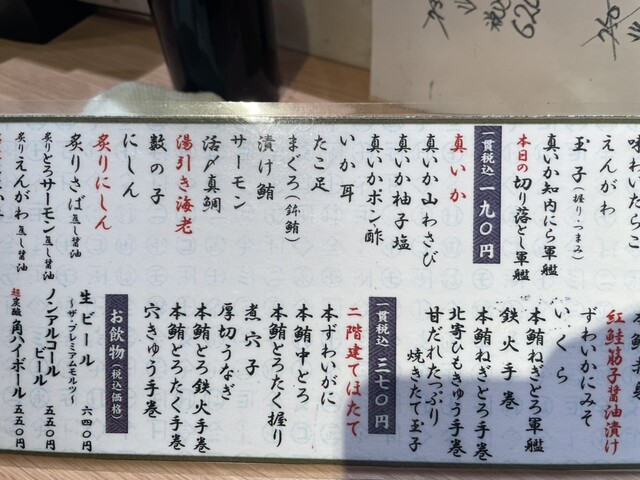 味わいたらこ
えんがわ
玉子（握り・つまみ）
真いか知内にら軍艦
本日の切り落とし軍艦
一貫税込 一九〇円
真いか
真いか山わさび
真いか柚子塩
真いかポン酢
いか耳
たこ足
まぐろ（鉾鮪）
漬け鮪
サーモン
活〆真鯛
湯引き海老
数の子
にしん
炙りにしん
炙りさば 直し醤油
炙りとろサーモン 直し醤油
炙りえんがわ 直し醤油
紅鮭筋子醤油漬け
ずわいかにみそ
いくら
本鮪ねぎとろ軍艦
鉄火手巻
本鮪ねぎとろ手巻
北寄ひもきゅう手巻
甘だれたっぷり
焼きたて玉子
一貫税込 三七〇円
二階建てほたて
本ずわいがに
本鮪中とろ
本鮪とろたく握り
煮穴子
厚切うなぎ
本鮪とろ鉄火手巻
本鮪とろたく手巻
穴きゅう手巻
お飲物（税込価格）
生ビール 六四〇円
～ザ・プレミアムモルツ～
ノンアルコール
ビール 五五〇円
超炭酸 角ハイボール 五五〇円